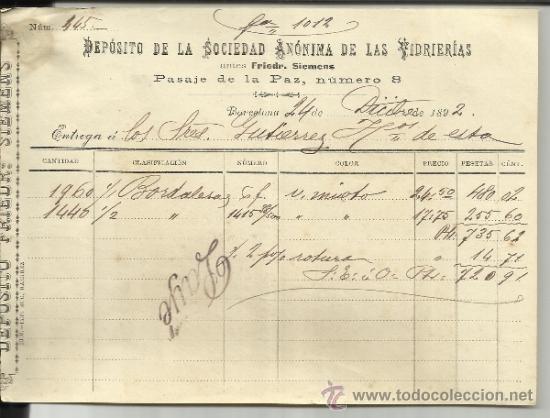 Núm. 945. fra 1012
DEPÓSITO DE LA SOCIEDAD ANÓNIMA DE LAS VIDRIERÍAS
antes Friedr. Siemens
Pasaje de la Paz, número 8
Barcelona 24 de Dicbre de 1892.
Entrega á los Sres. Gutierrez Hnos de esta
CANTIDAD CLASIFICACIÓN NÚMERO COLOR PRECIO PESETAS CÉNT.
1960 1/1 Bordalesa v. mixto 24.50 480 02
1440 1/2 " " " 17.75 255 60
735 62
2 p% rotura " 14 71
S. E. ú O. Pts. 720 91
DEPÓSITO FRIEDR. SIEMENS
www.todocoleccion.net